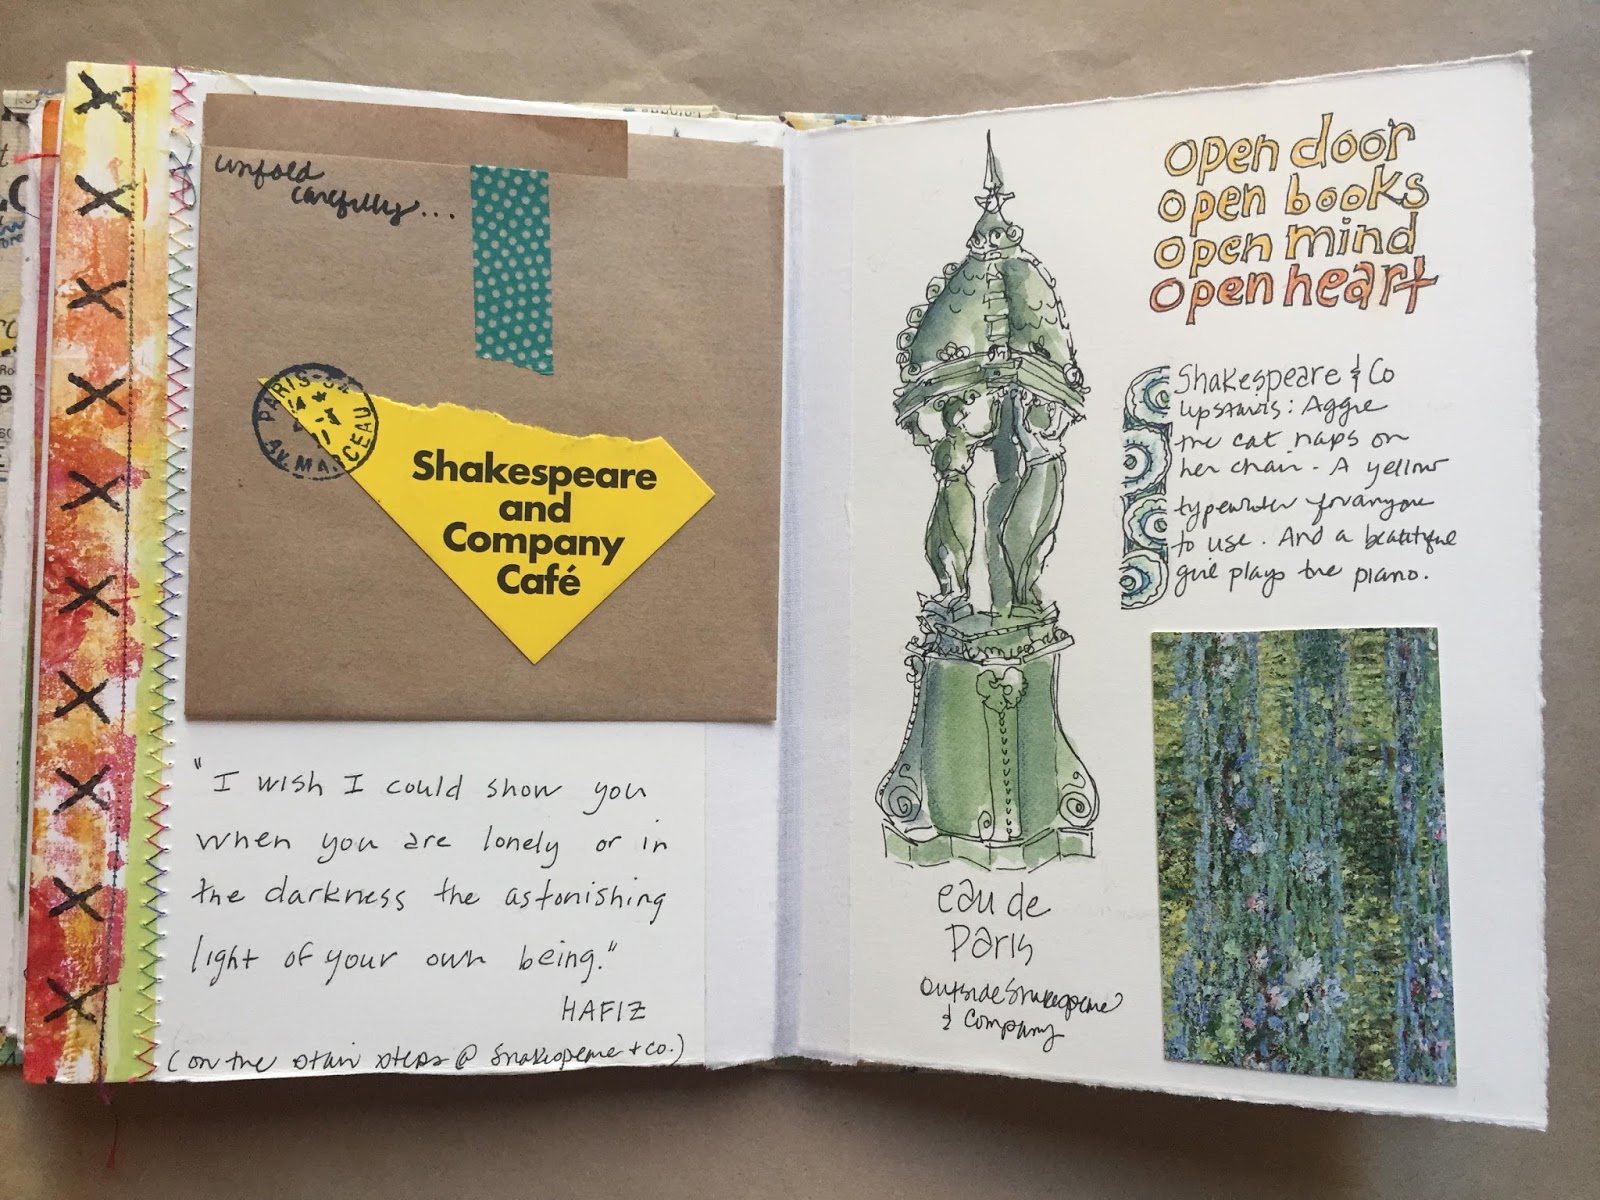 unfold
carefully...
PARIS-
AV. MARCEAU
Shakespeare
and
Company
Café
"I wish I could show you
when you are lonely or in
the darkness the astonishing
light of your own being."
HAFIZ
(on the stair steps @ Shakespeare + Co.)
open door
open books
open mind
open heart
Shakespeare & Co
upstairs: Aggie
the cat naps on
her chair. A yellow
typewriter for anyone
to use. And a beautiful
girl plays the piano.
eau de
Paris
outside Shakespeare
& Company